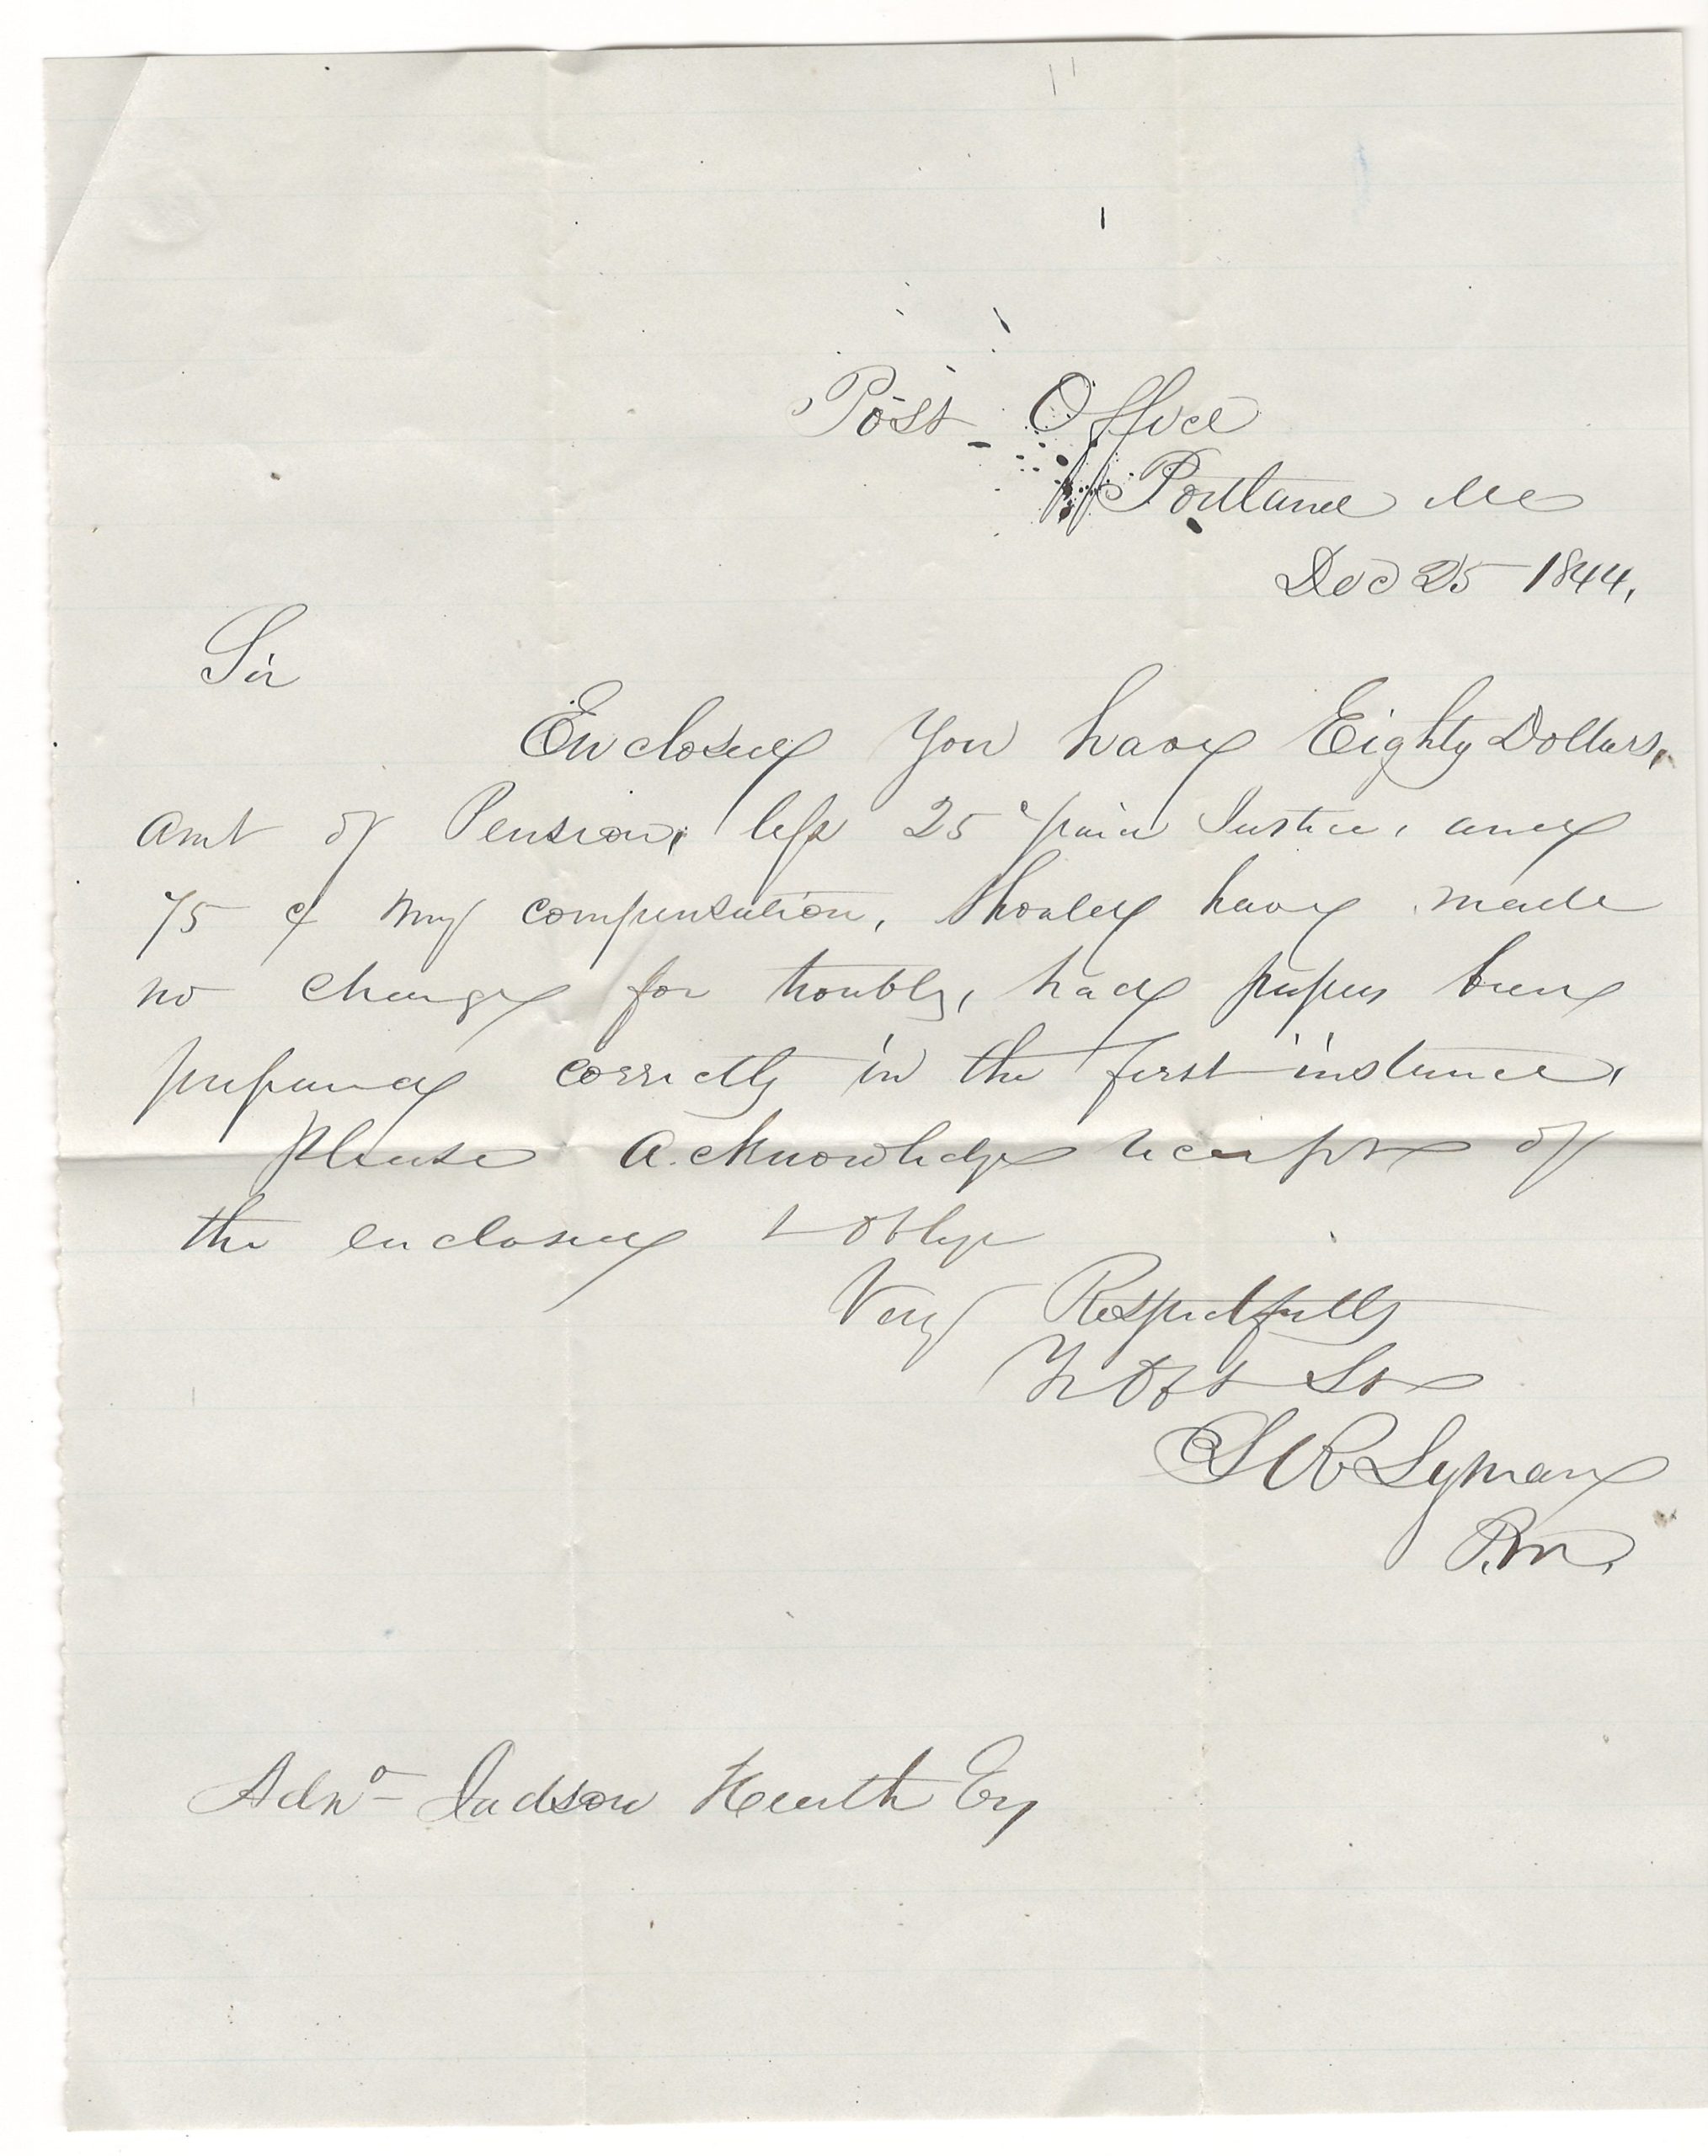 Post Office
Portland Me
Dec 25 1844,
Sir
Enclosed you have Eighty Dollars,
amt of Pension, less 25 c paid Justice, and
75 c my compensation, should have made
no charge for trouble, had papers been
prepared correctly in the first instance,
Please acknowledge receipt of
the enclosed & oblige
Very Respectfully
Yr Obt St
S R Lyman
P.M.
Judson Heath Esq